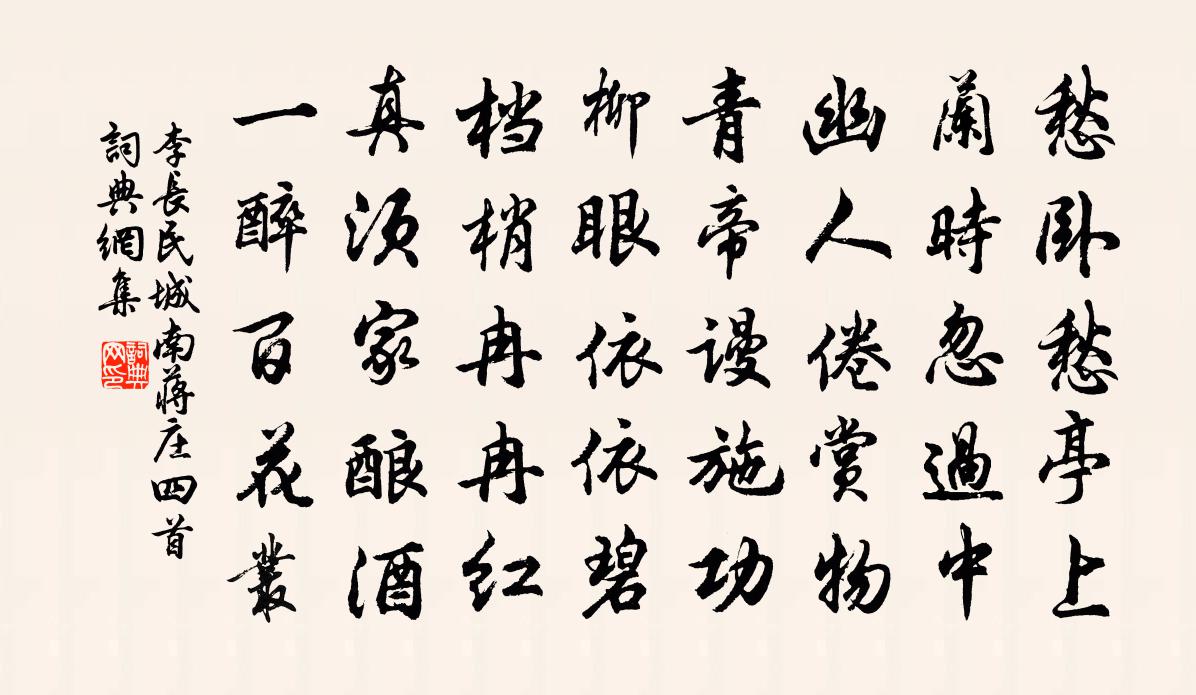 愁臥愁亭上
蘭時忽過中
幽人倦賞物
青帝謾施功
柳眼依依碧
档梢冉冉红
真须家酿酒
一醉百花叢
李長民城南蔣庄四首
詞典網集
詞典网印